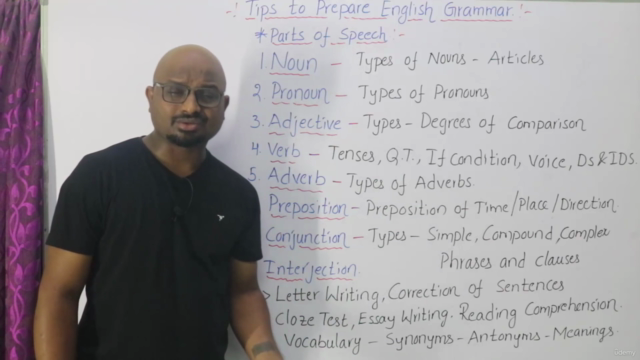 -:Tips to Prepare English Grammar:-
* Parts of Speech:-
1 Noun - Types of Nouns - Articles
2 Pronoun - Types of Pronouns
3. Adjective - Types - Degrees of Comparison
4. Verb - Tenses, Q.T., If Condition, Voice, DS & IDS.
5. Adverb - Types of Adverbs.
Preposition - Preposition of Time/Place/Direction
Conjunction - Types - Simple, Compound, Complex
Phrases and clauses
Interjection.
Letter Writing, Correction of Sentences
Cloze Test, Essay Writing. Reading Comprehension.
Vocabulary - Synonyms - Antonyms - Meanings